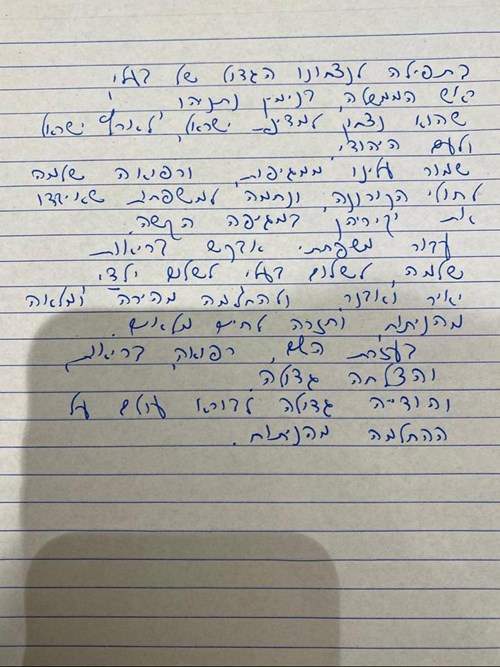 בתפילה לנצחונו הגדול של בעלי
ראש הממשלה, בנימין נתניהו
שהוא נצחון למדינת ישראל, לארץ ישראל
ולעם היהודי.
שמור עלינו ממגיפות, ורפואה שלמה
לחולי הקורונה, ונחמה למשפחות שאיבדו
את יקיריהן במגיפה הקשה.
עבור משפחתי אבקש בריאות
שלמה, לשלום בעלי לשלום ילדי
יאיר ואבנר, ולהחלמה מהירה ומלאה
מהניתוח, וחזרה לחיים מלאים.
בעזרת השם, רפואה, בריאות
והצלחה גדולה.
והודייה גדולה לבורא עולם על
ההחלמה מהניתוח.